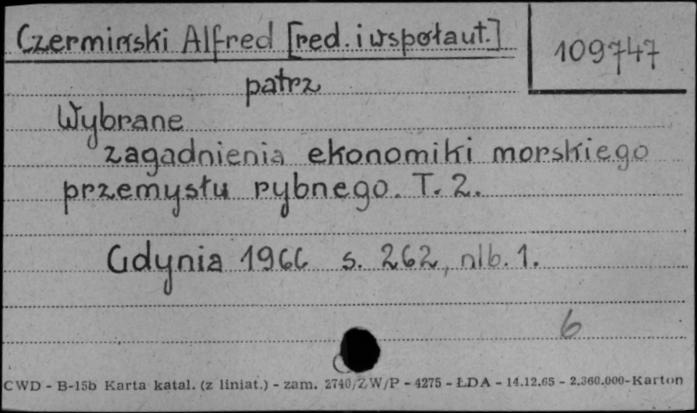 Czermiński Alfred [red. i współaut.]
109747
patrz
Wybrane
zagadnienia ekonomiki morskiego
przemysłu rybnego. T. 2.
Gdynia 1966 s. 262, nlb. 1.
6
CWD - B-15b Karta katal. (z liniat.) - zam. 2740/ZW/P - 4275 - ŁDA - 14.12.65 - 2.360.000-Karton